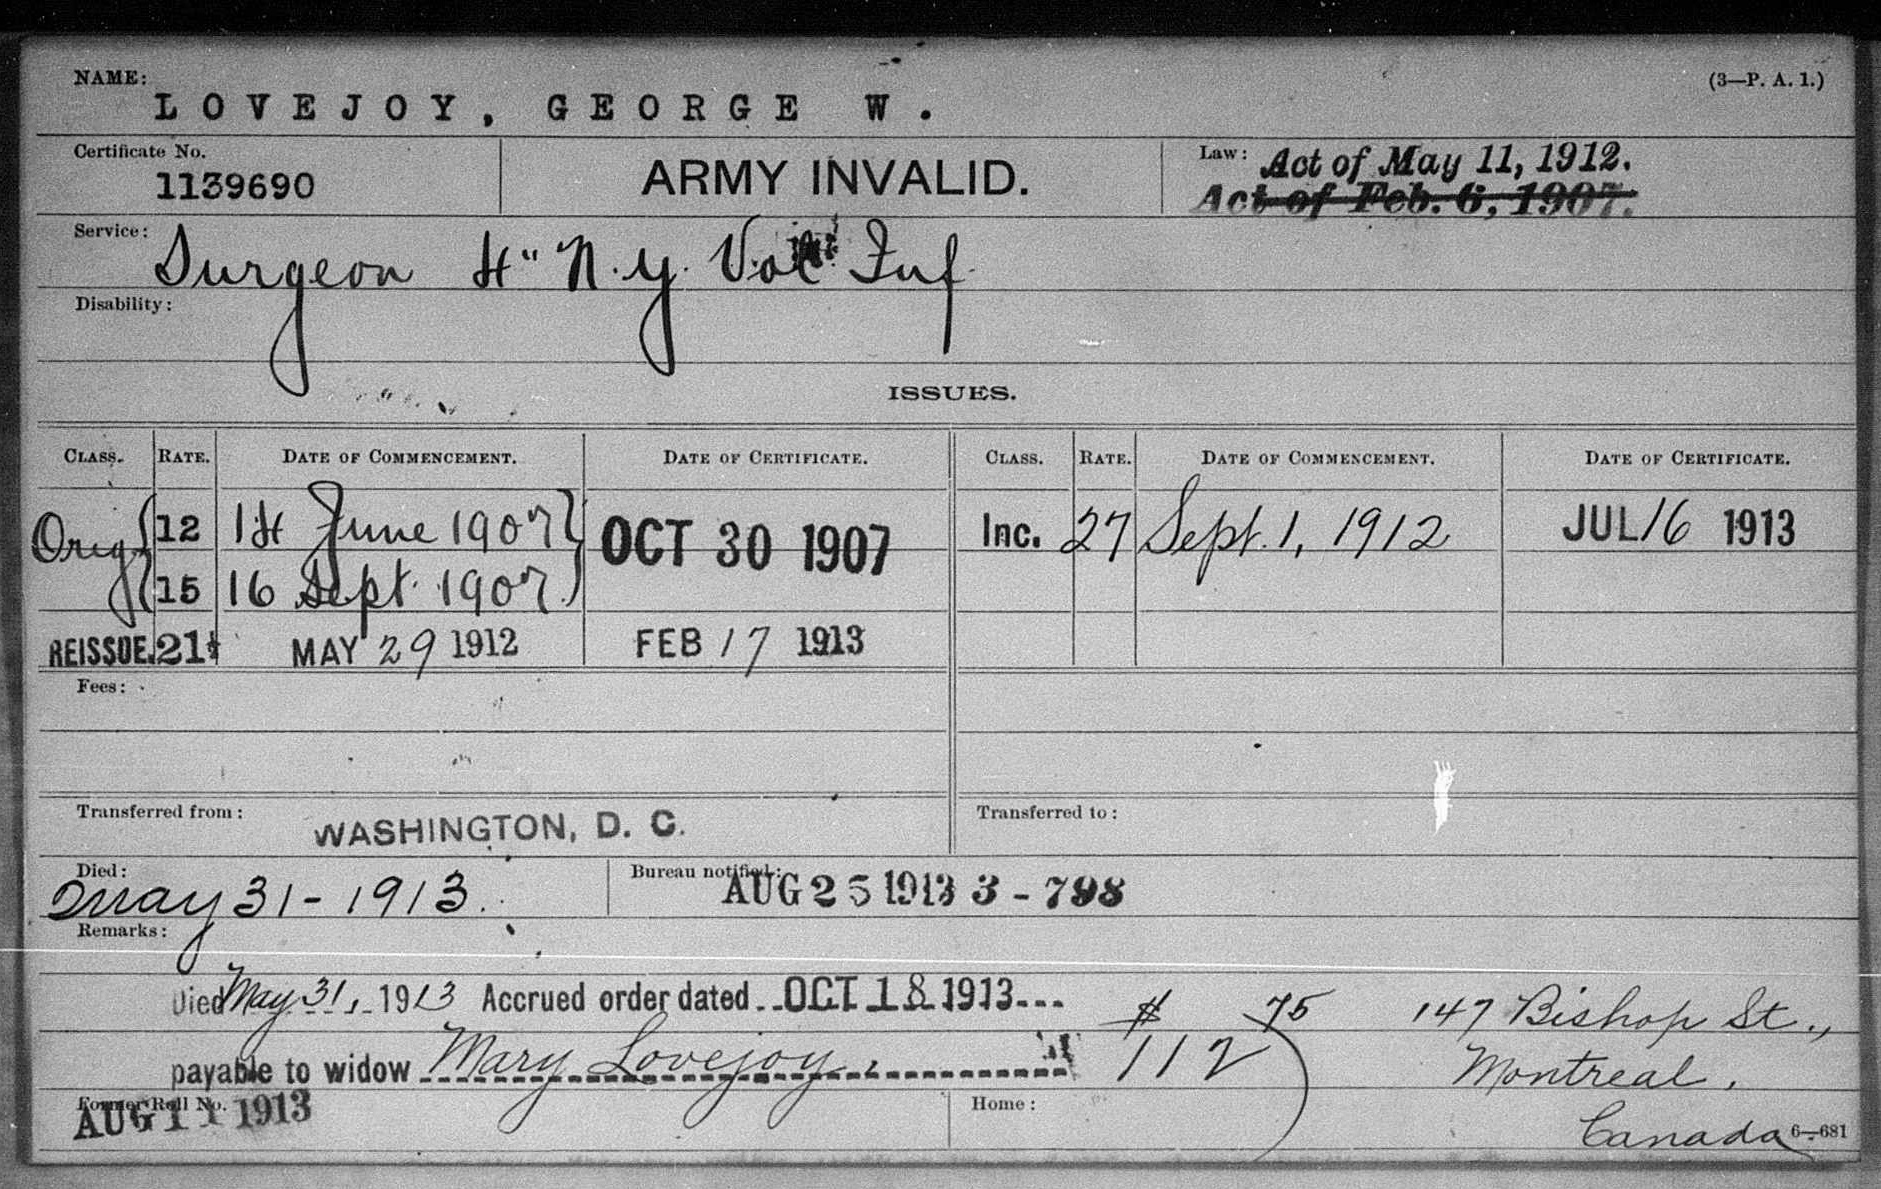 NAME: (3—P. A. 1.)
LOVEJOY, GEORGE W.
Certificate No. 1139690
ARMY INVALID.
Law: Act of May 11, 1912.
Act of Feb. 6, 1907.
Service: Surgeon 4" N.Y. Vol Inf
Disability:
ISSUES.
CLASS. RATE. DATE OF COMMENCEMENT. DATE OF CERTIFICATE. CLASS. RATE. DATE OF COMMENCEMENT. DATE OF CERTIFICATE.
Orig 12 14 June 1907 OCT 30 1907 Inc. 27 Sept. 1, 1912 JUL 16 1913
15 16 Sept. 1907
REISSUE. 21½ MAY 29 1912 FEB 17 1913
Fees:
Transferred from: WASHINGTON, D. C. Transferred to:
Died: May 31-1913. Bureau notified: AUG 25 1913 3-798
Remarks:
Died May 31, 1913 Accrued order dated OCT 18 1913 $ 75 147 Bishop St.,
payable to widow Mary Lovejoy. 112 Montreal.
Former Roll No. AUG 11 1913 Home: Canada 6—681